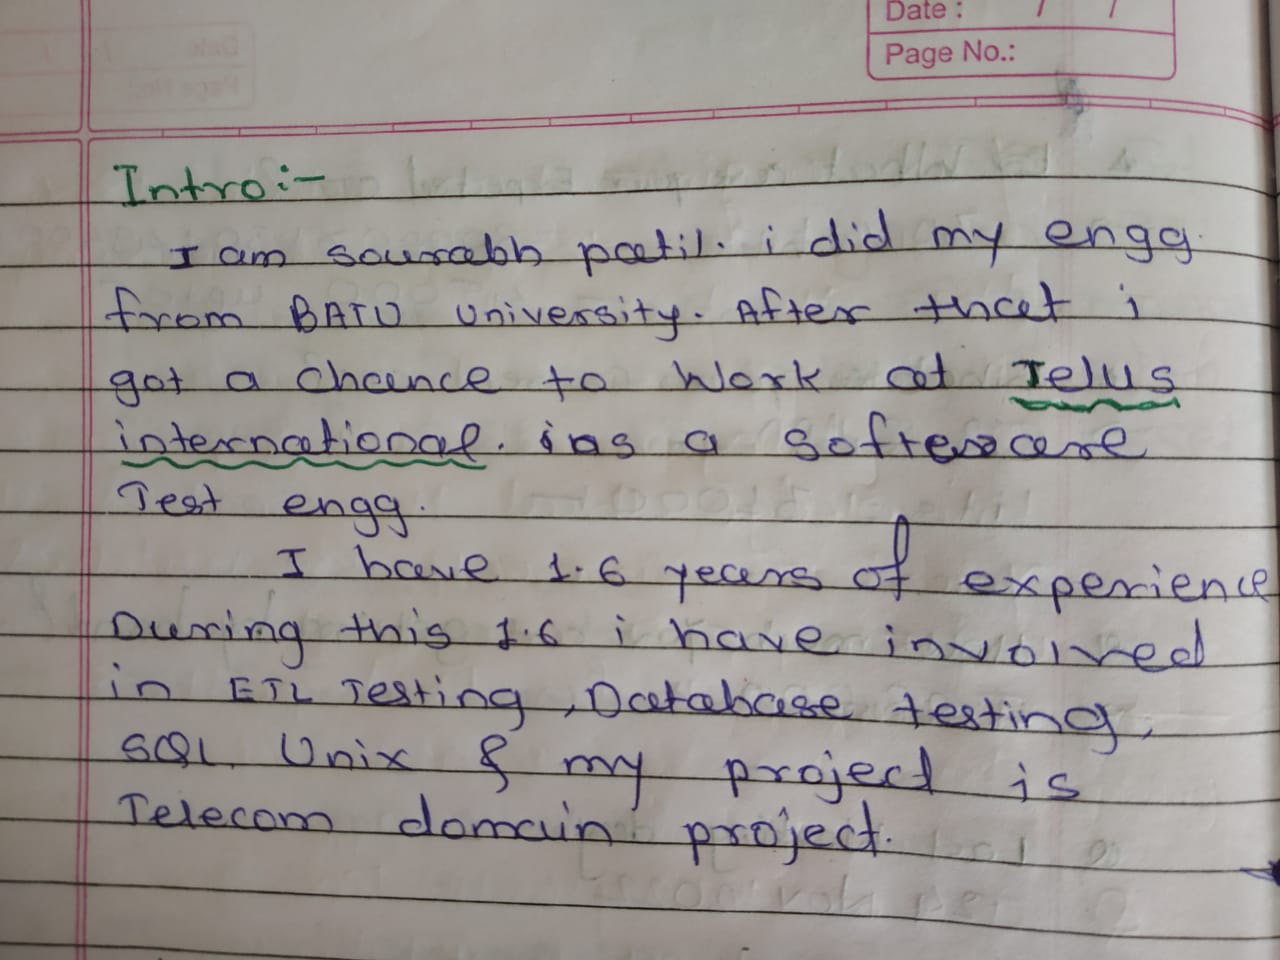 Date : / /
Page No.:
Intro:-
I am sourabh patil. i did my engg.
from BATU University. After that i
got a chance to work at Telus
international. as a software
Test engg.
I have 1.6 years of experience
During this 1.6 i have involved
in ETL Testing, Database testing,
SQL, Unix & my project is
Telecom domain project.